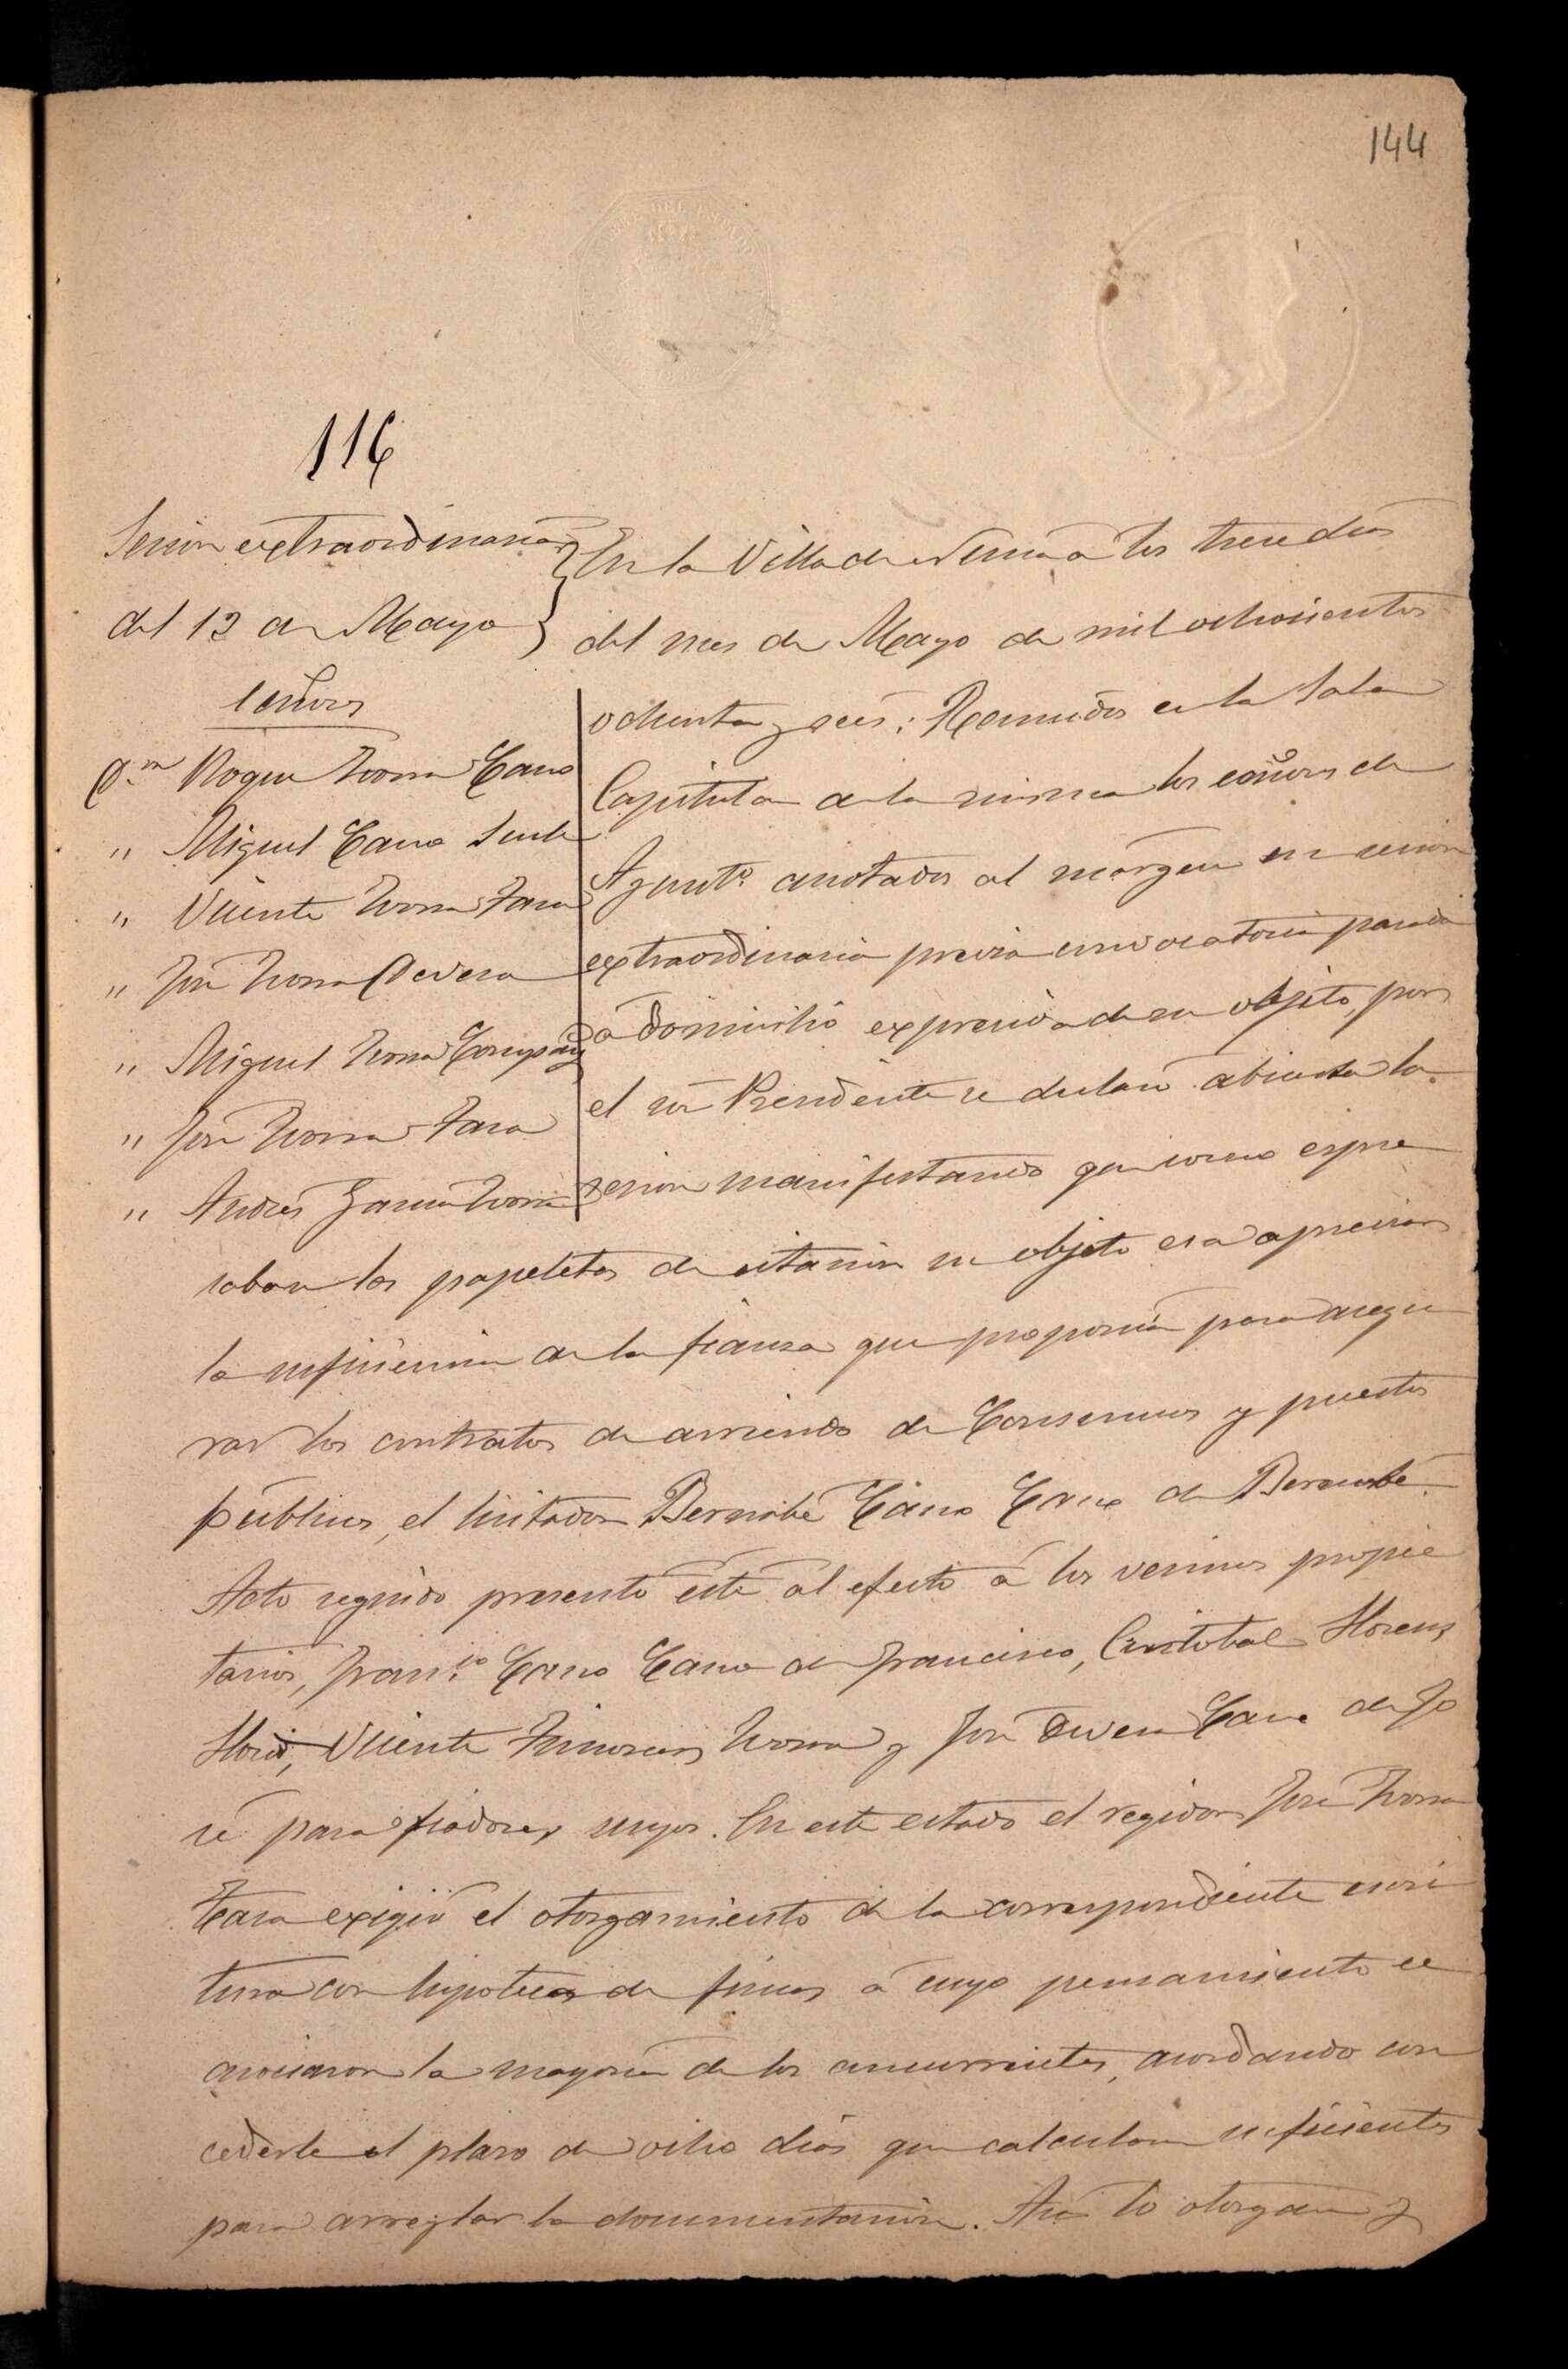 144
116
Sesion extraordinaria
del 13 de Mayo
Señores
Dn Roque Lloret Cano
" Miguel Cano
" Vicente
" José Devesa
" Miguel Company
" José
" Andrés Garcia
En la Villa de a los trece dias
del mes de Mayo de mil ochocientos
ochenta y seis: Reunidos en la Sala
Capitular de la misma los señores de
Ayuntº anotados al margen en sesion
extraordinaria previa convocatoria pasada
a domicilio expresiva de su objeto, por
el sor Presidente se declaró abierta la
sesion manifestando que como expre
saban las papeletas de citacion su objeto era apreciar
la suficiencia de la fianza que proponia para asegu
rar los contratos de arriendo de Consumos y puestos
publicos, el licitador Bernabé Cano Cano de Bernabé.
Acto seguido presentó este al efecto á los vecinos propie
tarios, Franco Cano Cano de Francisco, Cristobal Llorens
Vicente y José Devesa Cano de Jo
sé para fiadores suyos. En este estado el regidor José
exigió el otorgamiento de la correspondiente escri
tura con hipoteca de fincas á cuyo pensamiento se
asociaron la mayoria de los concurrentes, acordando con
cederle el plazo de ocho dias que calcularon suficientes
para arreglar la documentacion. Asi lo otorgan y